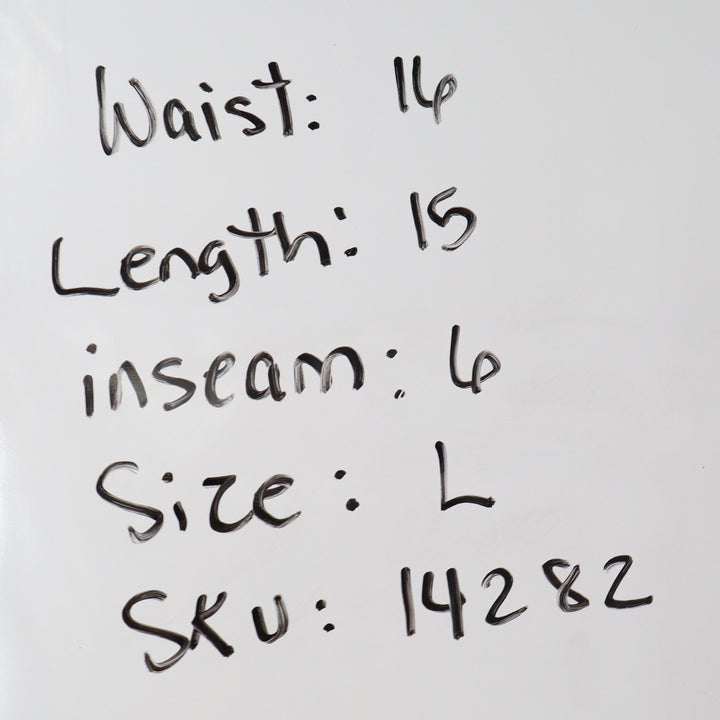 Waist: 16
Length: 15
inseam: 6
Size: L
SKU: 14282